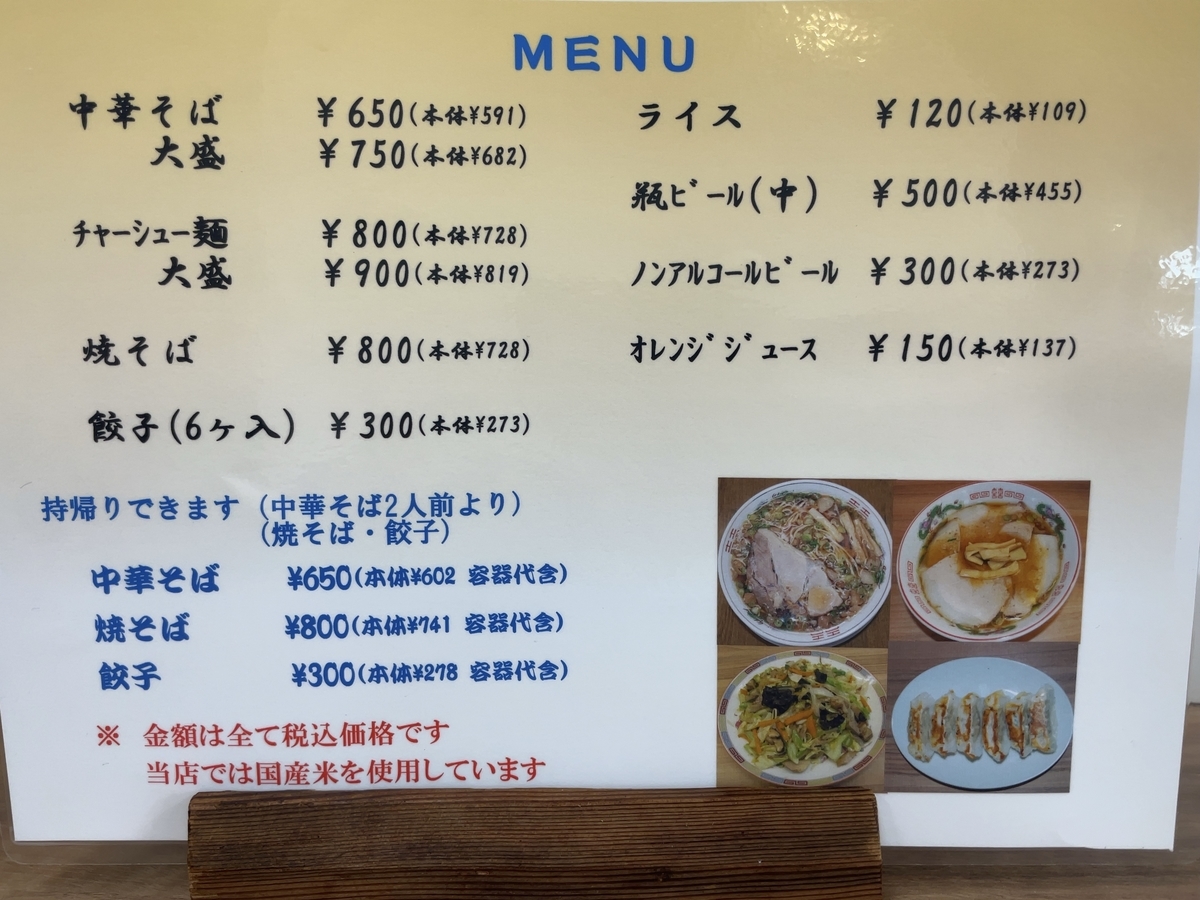 MENU
中華そば ¥650(本体¥591)
大盛 ¥750(本体¥682)
チャーシュー麺 ¥800(本体¥728)
大盛 ¥900(本体¥819)
焼そば ¥800(本体¥728)
餃子(6ヶ入) ¥300(本体¥273)
ライス ¥120(本体¥109)
瓶ビール(中) ¥500(本体¥455)
ノンアルコールビール ¥300(本体¥273)
オレンジジュース ¥150(本体¥137)
持帰りできます (中華そば2人前より)
(焼そば・餃子)
中華そば ¥650(本体¥602 容器代含)
焼そば ¥800(本体¥741 容器代含)
餃子 ¥300(本体¥278 容器代含)
※ 金額は全て税込価格です
当店では国産米を使用しています